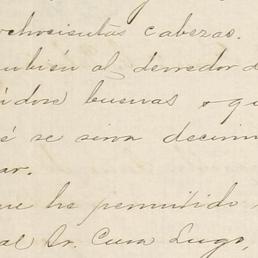 ochocientas cabezas.
también al derredor d
dose buenas o qu
é se sirva decirm
ar.
ue he permitido
al Sr. Cura Lugo,